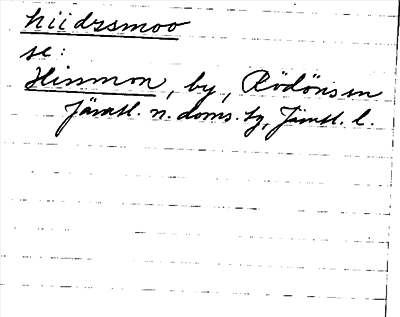 hiidrsmoo
se:
Hissmon, by, Rödöns sn
Jämtl. n. doms. tg, Jämtl. l.